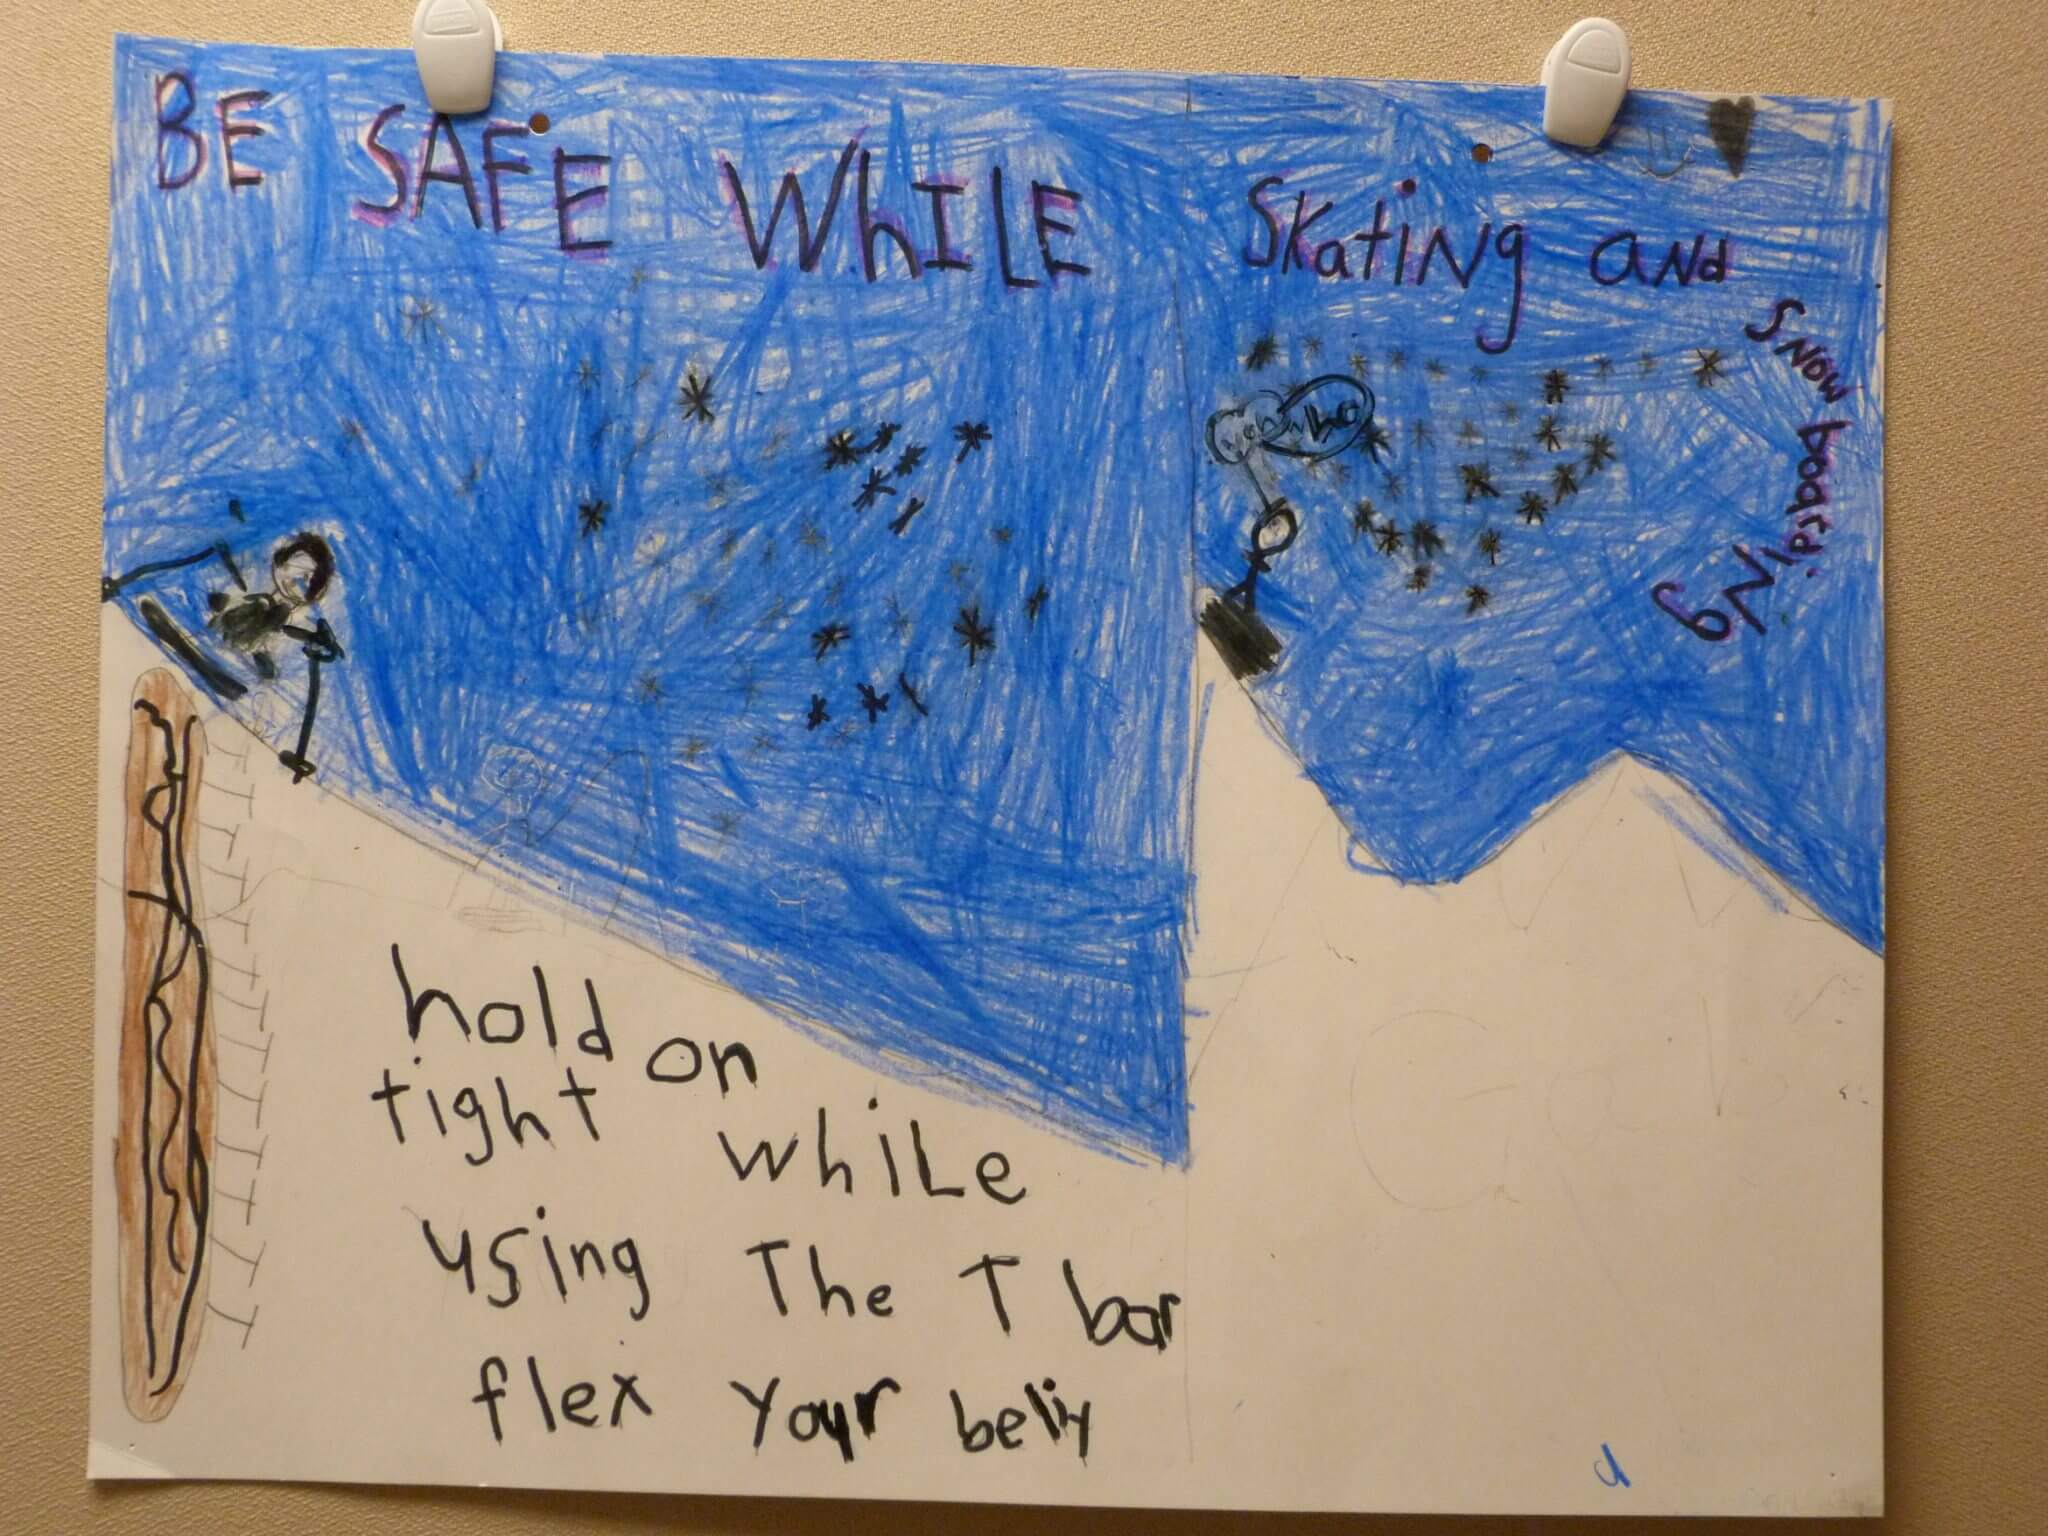 BE SAFE WHILE Skating and
Snow boardiNg
hold on
tight while
using The T bar
flex your belly